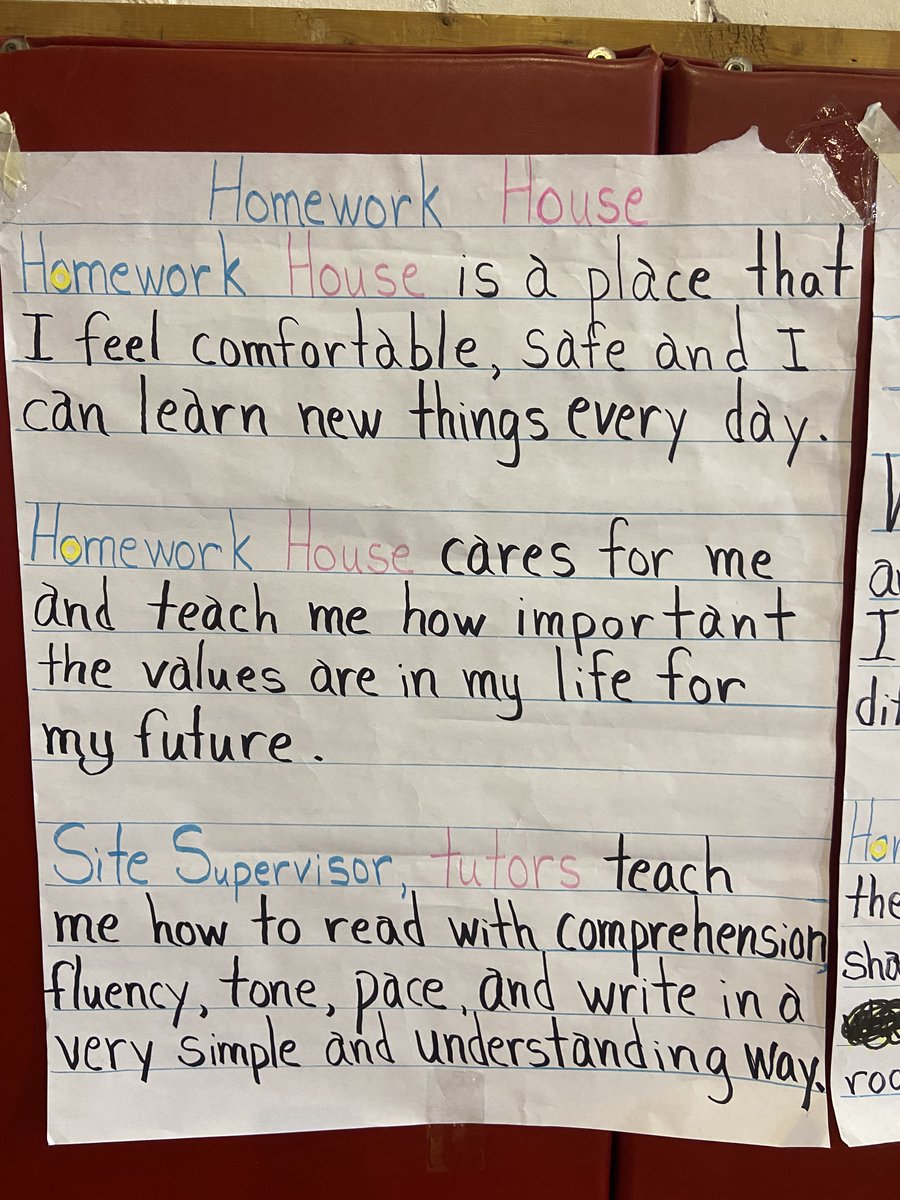 Homework House
Homework House is a place that
I feel comfortable, safe and I
can learn new things every day.
Homework House cares for me
and teach me how important
the values are in my life for
my future.
Site Supervisor, tutors teach
me how to read with comprehension,
fluency, tone, pace, and write in a
very simple and understanding way.
I
the